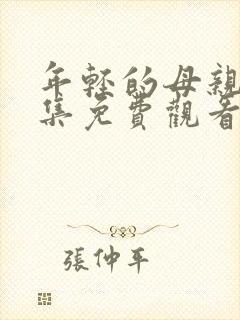 年轻的母親
集免費觀看
張仲平